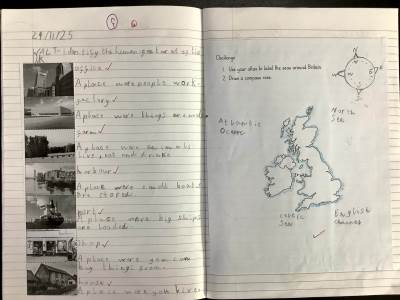 24/11/25
WALT- identify the human features of the
UK
office
A place were people work.
factory
A place were things are made
farm
A place were animals
live, and
harbour
A place were small boats
are stored
port
A place were big ships
are loaded
shop
A place were you can
buy things from.
house
A place were you live
Challenge
1. Use your atlas to label the seas around Britain
2. Draw a compass rose.
N
W
E
S
North
Sea
Atlantic
Ocean
Celtic
Sea
English
Channel